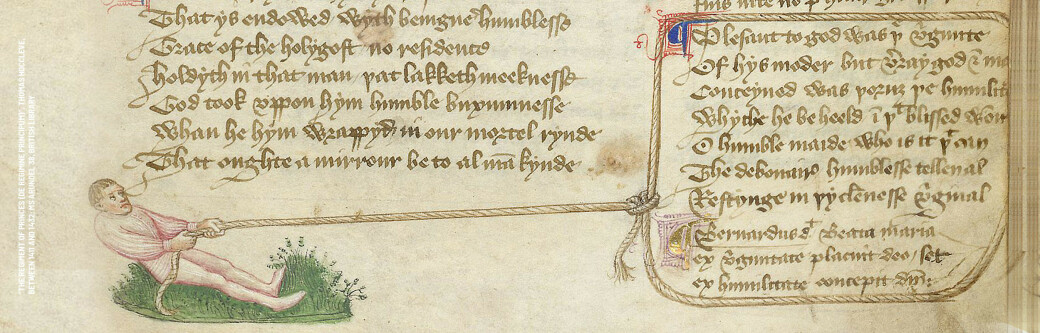 That ys endowed wyth benigne humblesse
Grace of the holy gost no residence
Holdyth in that man þat lakketh meeknesse
God took vppon hym humble buxumnesse
Whan he hym wrappyd in our mortel rynde
That oughte a mirrour be to al mā kynde
Plesant to god was þe v̄ginite
Of hys moder but v̄ray god & mā
Conceyued was þoruȝ þe humilite
Whyche he beheeld ī þt blissed
O humble maide who is it þt can
The debonair humblesse tellen al
Restynge in þy clēnesse v̄ginal
Bernardus d Beata maria
ex v̄ginitate placuit deo / set
ex humilitate concepit
"THE REGIMENT OF PRINCES (DE REGIMINE PRINCIPUM)", THOMAS HOCCLEVE,
BETWEEN 1411 AND 1432, MS ARUNDEL 38, BRITISH LIBRARY